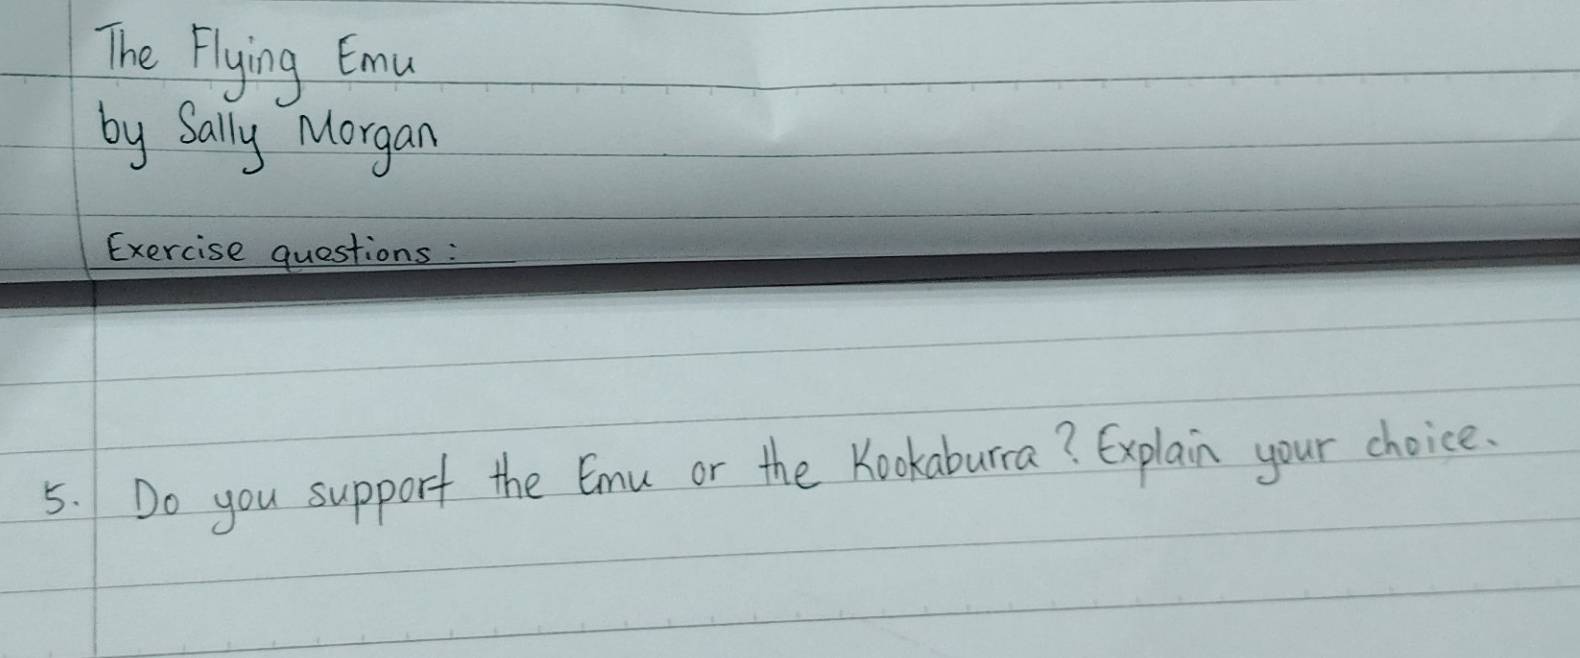 The Flying Emu
by Sally Morgan
Exercise questions:
5. Do you support the Emu or the Kookaburra? Explain your choice.